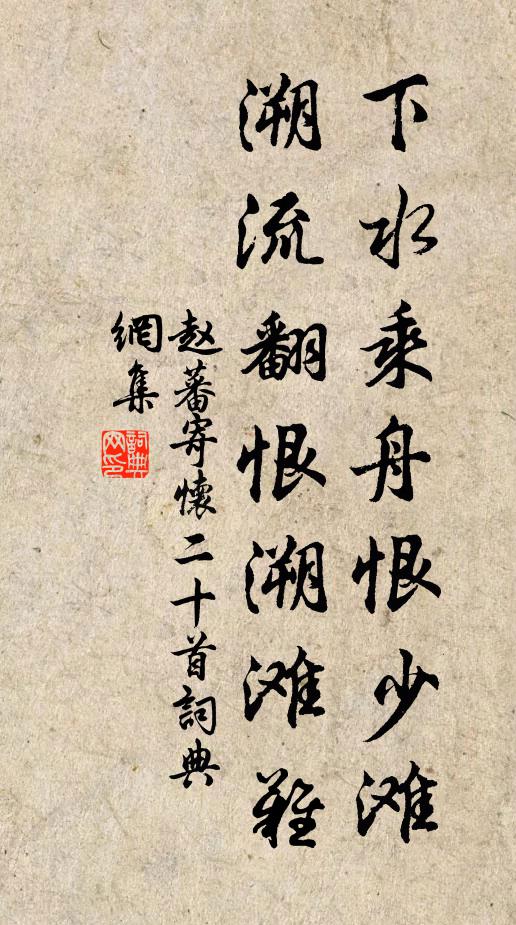 下水乘舟恨少滩
溯流翻恨溯滩难
赵蕃寄懷二十首詞典
網集
詞典网印